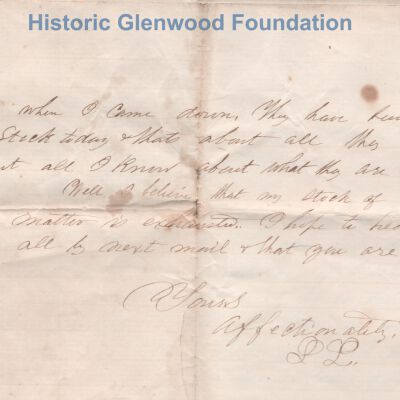 Historic Glenwood Foundation
when I came down. They have
Stock today & thats about all they
all I know about what they are
Well I believe that my stock of
matter is exhausted. I hope to
all by next mail & that you are
Yours
Affectionately,